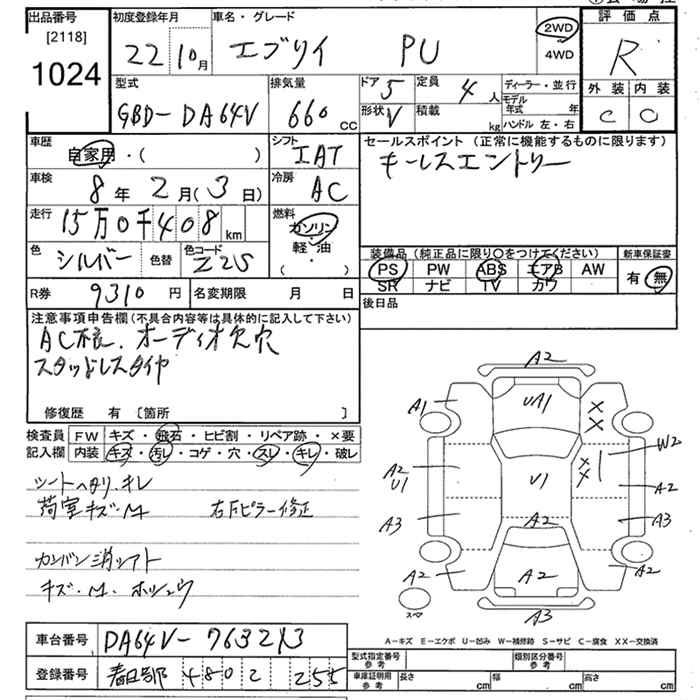 出品番号
[2118]
1024
初度登録年月
22 10月
車名・グレード
エブリイ PU
2WD
4WD
評価点
R
外装 内装
C C
型式
GBD-DA64V
排気量
660 CC
ドア 5
形状 V
定員 4人
積載 kg
ディーラー・並行
モデル年式 年
ハンドル 左・右
車歴
自家用・( )
シフト
IAT
車検
8年2月(3日)
冷房
AC
走行
15万0千408 km
燃料
ガソリン
軽油
( ・ )
色
シルバー
色替
色コード
Z2S
R券
9310円
名変期限 月 日
セールスポイント(正常に機能するものに限ります)
キーレスエントリー
装備品(純正品に限り○をつけてください)
PS PW ABS エアB AW
SR ナビ TV カワ
新車保証書
有・無
後日品
注意事項申告欄(不具合内容等は具体的に記入して下さい)
AC不良、オーディオ欠穴
スタッドレスタイヤ
修復歴 有 〔箇所 〕
検査員 FW キズ・飛石・ヒビ割・リペア跡・×要
記入欄 内装 キズ・汚レ・コゲ・穴・スレ・キレ・破レ
シートヘタリ、キレ
荷室キズ・M 右Fピラー修正
カンバン消シアト
キズ・M・ホシュウ
A2
A1
UA1
XX
W2
A2
U1
U1
XX
A2
A3
A2
A3
A2
A2
A2
スペア
A3
A-キズ E-エクボ U-凹み W-補修跡 S-サビ C-腐食 XX-交換済
車台番号
DA64V-763213
登録番号
春日部 480 2 255
型式指定番号
参考
類別区分番号
参考
車庫証明用
参考
長さ cm
幅 cm
高さ cm